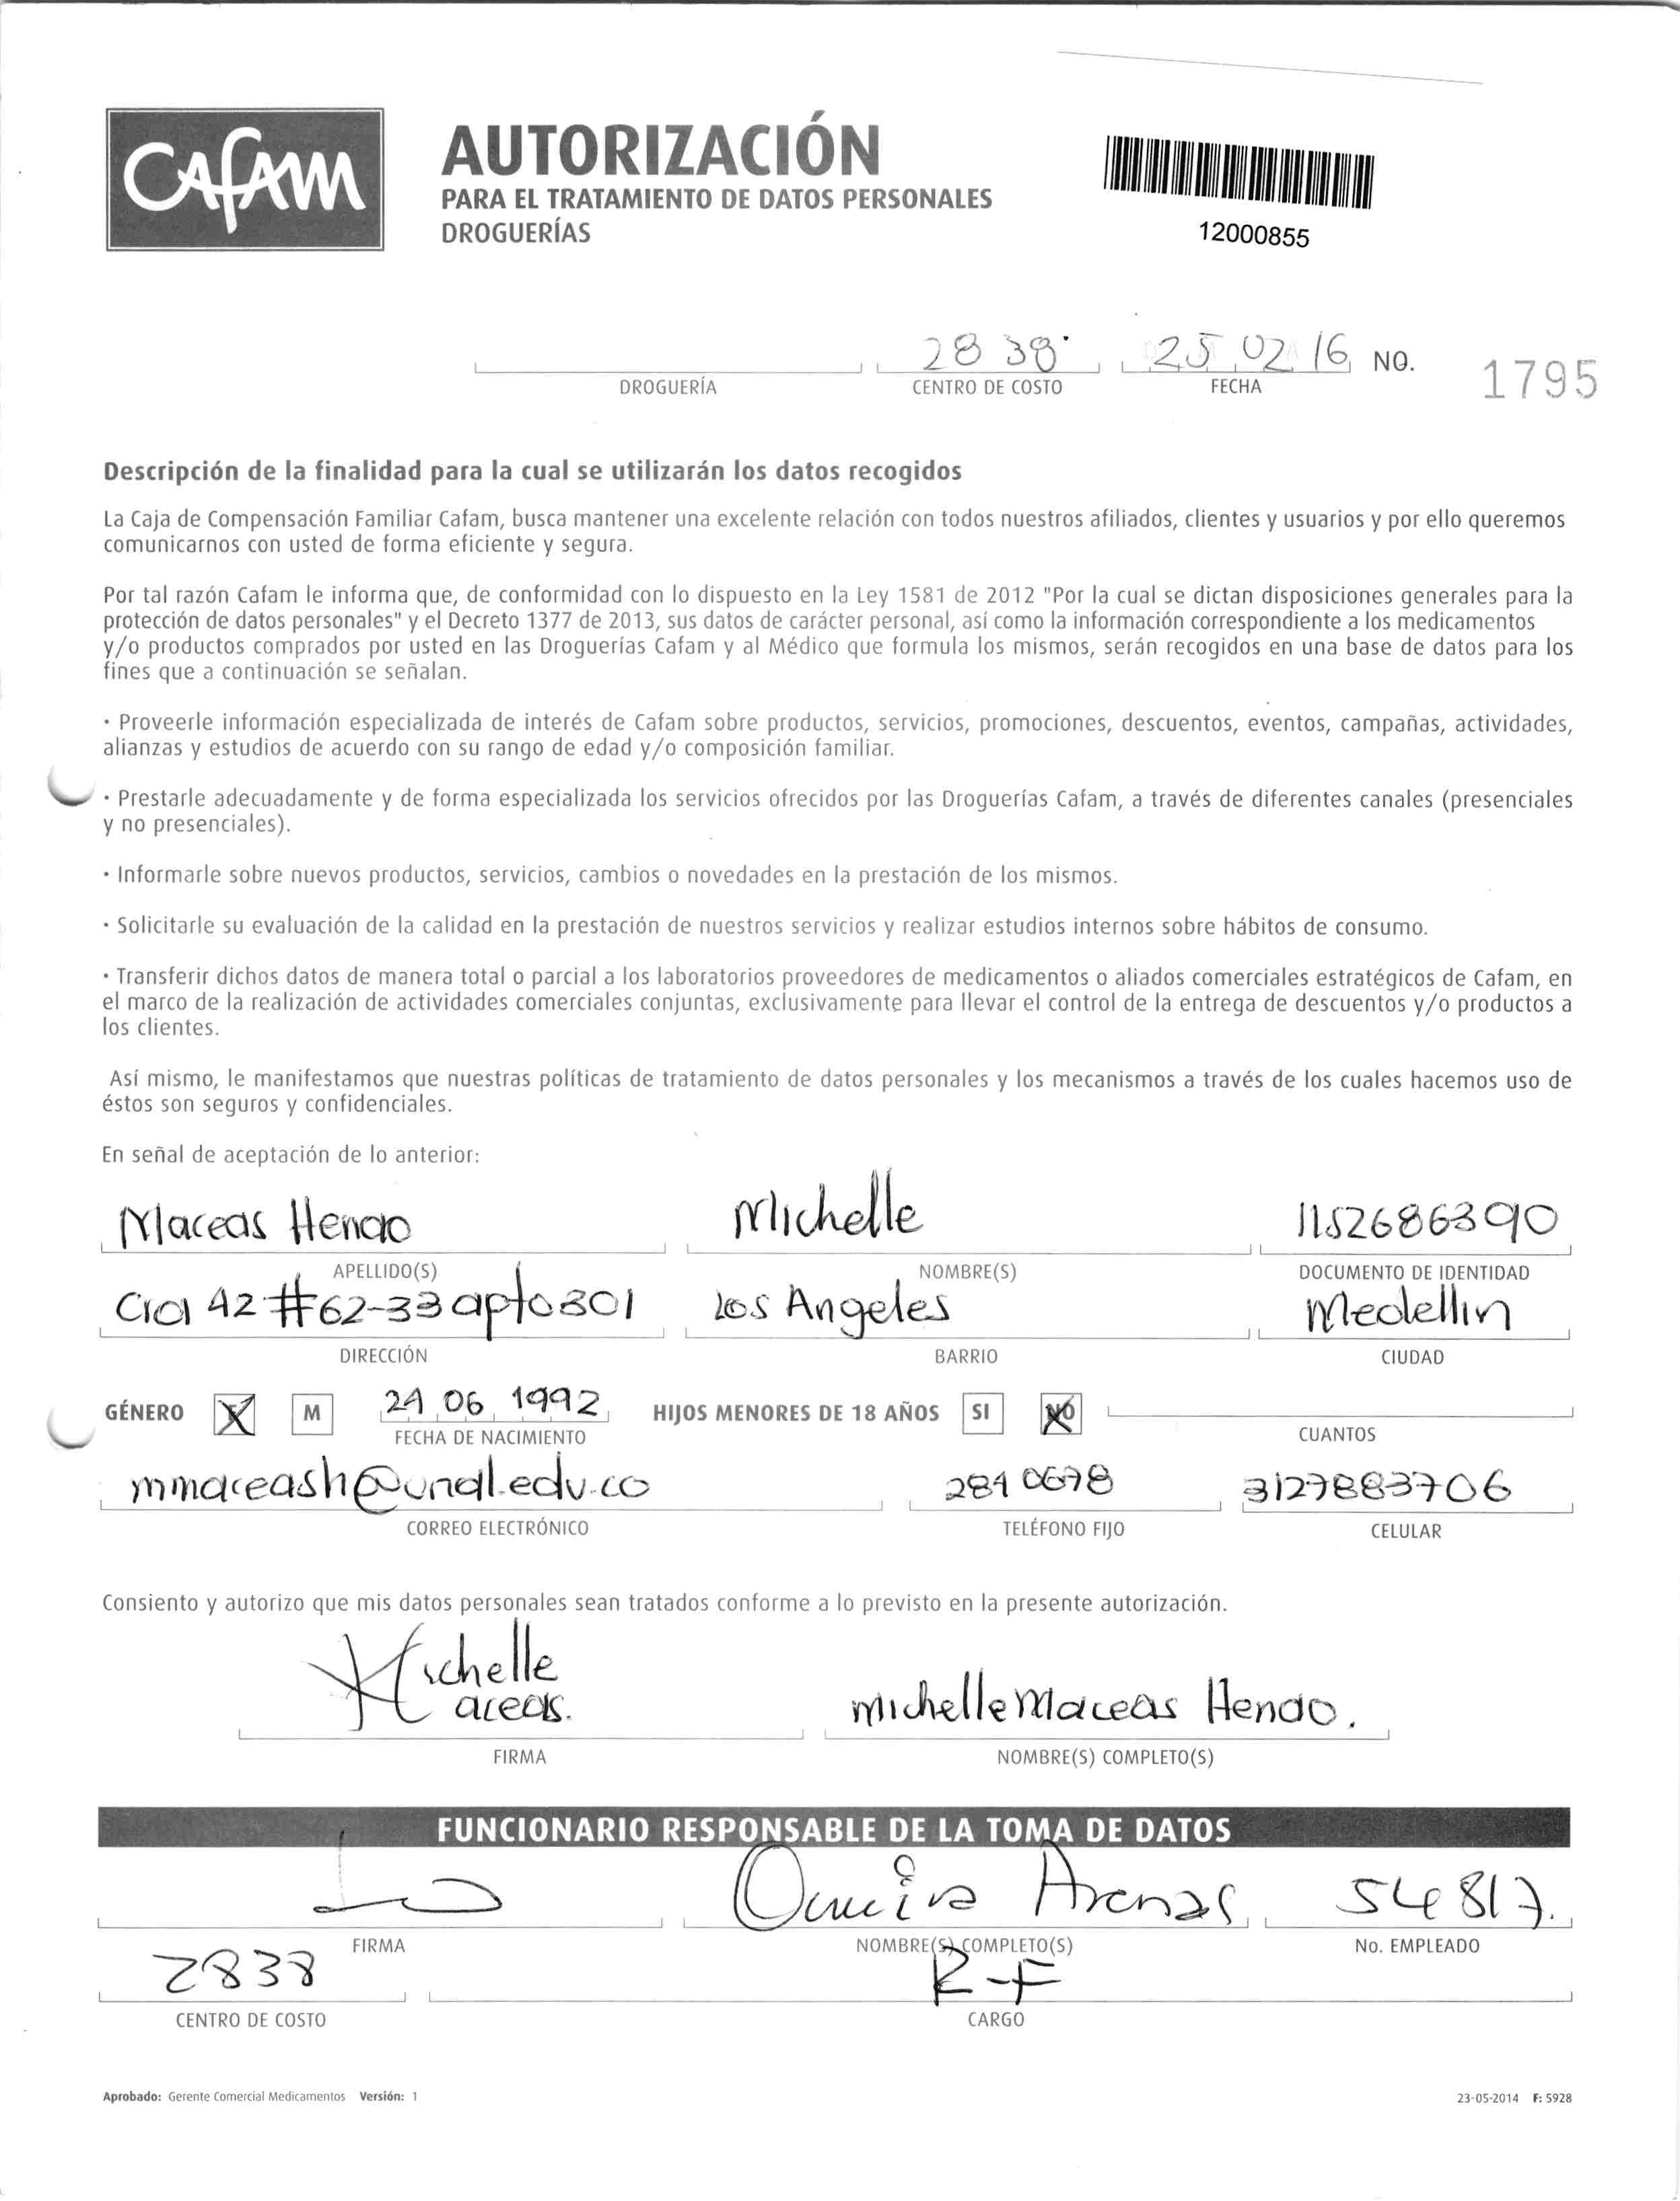 Cafam
AUTORIZACIÓN
PARA EL TRATAMIENTO DE DATOS PERSONALES
DROGUERÍAS
12000855
2838 25 02 16 NO. 1795
DROGUERÍA CENTRO DE COSTO FECHA
Descripción de la finalidad para la cual se utilizarán los datos recogidos
La Caja de Compensación Familiar Cafam, busca mantener una excelente relación con todos nuestros afiliados, clientes y usuarios y por ello queremos
comunicarnos con usted de forma eficiente y segura.
Por tal razón Cafam le informa que, de conformidad con lo dispuesto en la Ley 1581 de 2012 "Por la cual se dictan disposiciones generales para la
protección de datos personales" y el Decreto 1377 de 2013, sus datos de carácter personal, así como la información correspondiente a los medicamentos
y/o productos comprados por usted en las Droguerías Cafam y al Médico que formula los mismos, serán recogidos en una base de datos para los
fines que a continuación se señalan.
· Proveerle información especializada de interés de Cafam sobre productos, servicios, promociones, descuentos, eventos, campañas, actividades,
alianzas y estudios de acuerdo con su rango de edad y/o composición familiar.
· Prestarle adecuadamente y de forma especializada los servicios ofrecidos por las Droguerías Cafam, a través de diferentes canales (presenciales
y no presenciales).
· Informarle sobre nuevos productos, servicios, cambios o novedades en la prestación de los mismos.
· Solicitarle su evaluación de la calidad en la prestación de nuestros servicios y realizar estudios internos sobre hábitos de consumo.
· Transferir dichos datos de manera total o parcial a los laboratorios proveedores de medicamentos o aliados comerciales estratégicos de Cafam, en
el marco de la realización de actividades comerciales conjuntas, exclusivamente para llevar el control de la entrega de descuentos y/o productos a
los clientes.
Así mismo, le manifestamos que nuestras políticas de tratamiento de datos personales y los mecanismos a través de los cuales hacemos uso de
éstos son seguros y confidenciales.
En señal de aceptación de lo anterior:
Maceas Henao Michelle 1152686390
APELLIDO(S) NOMBRE(S) DOCUMENTO DE IDENTIDAD
Cra 42 #62-33 apto 301 Los Angeles Medellin
DIRECCIÓN BARRIO CIUDAD
GÉNERO X M 24 06 1992 HIJOS MENORES DE 18 AÑOS SI NO
FECHA DE NACIMIENTO CUANTOS
mmaceash@unal.edu.co 284 0678 3127883706
CORREO ELECTRÓNICO TELÉFONO FIJO CELULAR
Consiento y autorizo que mis datos personales sean tratados conforme a lo previsto en la presente autorización.
Michelle
aceas.
Michelle Maceas Henao.
FIRMA NOMBRE(S) COMPLETO(S)
FUNCIONARIO RESPONSABLE DE LA TOMA DE DATOS
Arenas 54817.
FIRMA NOMBRE(S) COMPLETO(S) No. EMPLEADO
2838 R-F
CENTRO DE COSTO CARGO
Aprobado: Gerente Comercial Medicamentos Versión: 1 23-05-2014 F: 5928